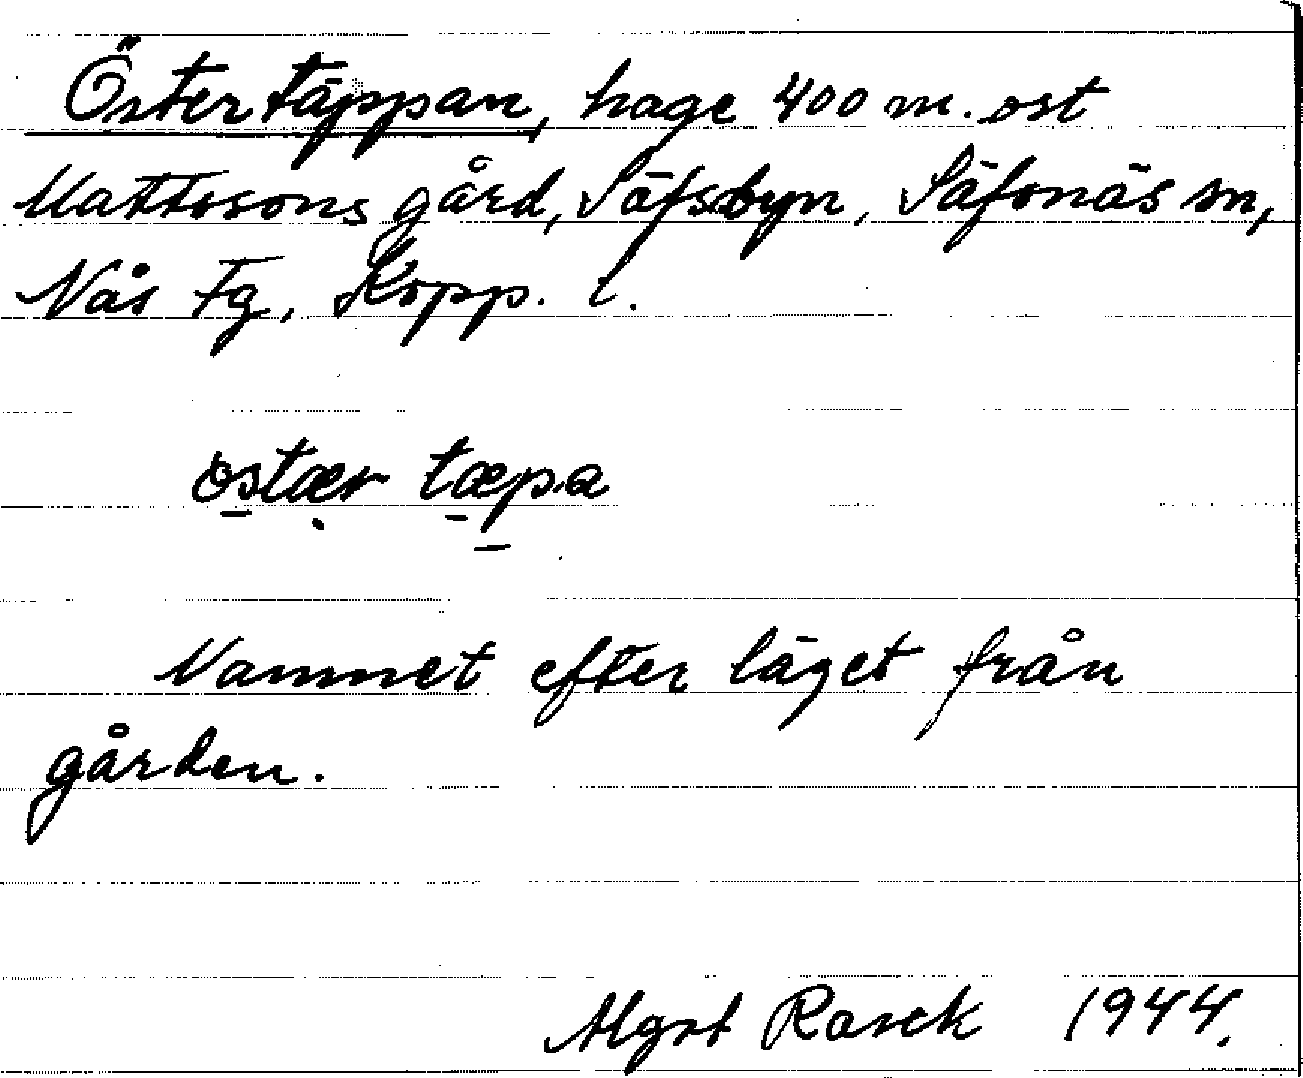 Östertäppan, hage 400 m. ost
Mattssons gård, Säfsbyn, Säfsnäs sn,
Nås tg, Kopp. l.
òstær tæpa
Namnet efter läget från
gården.
Algot Rasck 1944.